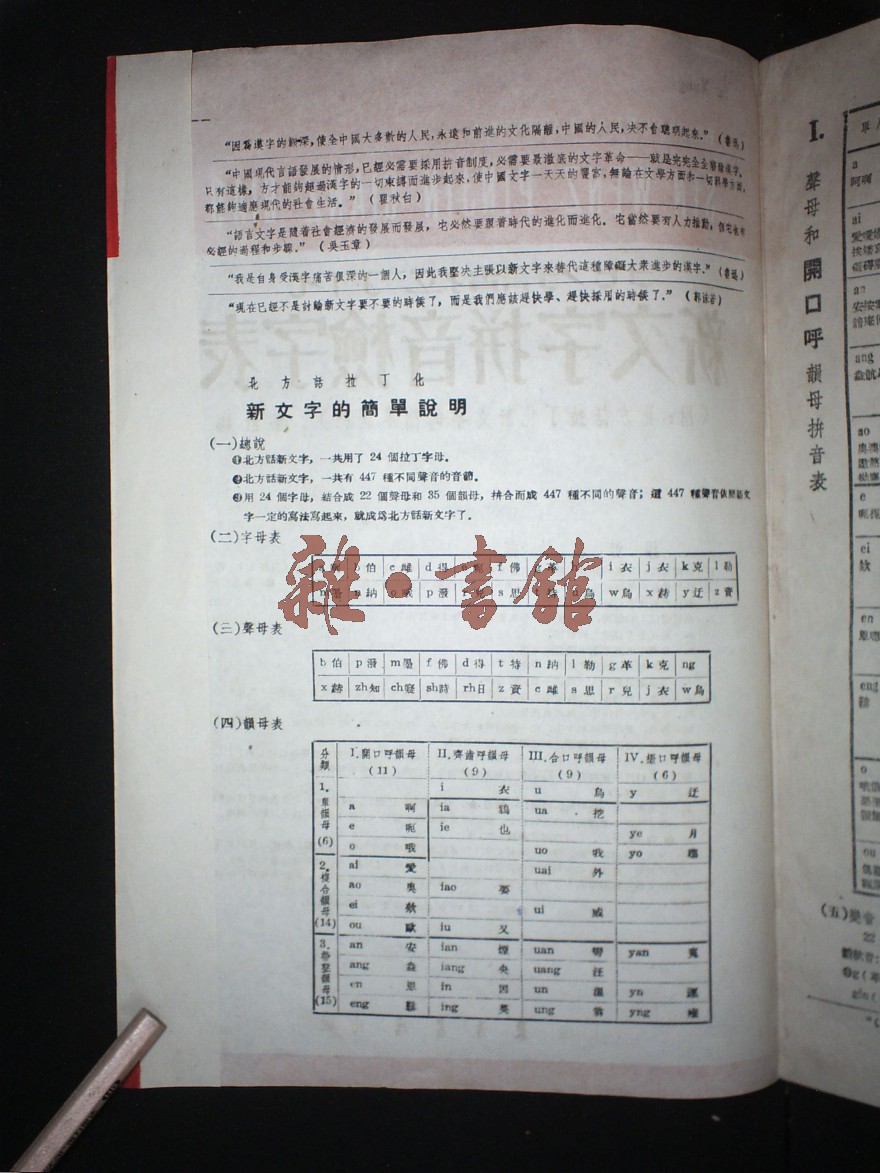 “因爲漢字的艱深,使全中國大多數的人民,永遠和前進的文化隔離,中國的人民,决不會聰明起來。” (魯迅)
“中國現代言語發展的情形,已經必需要採用拼音制度,必需要最澈底的文字革命——就是完完全全廢除漢字。
只有這樣,方才能夠超過漢字的一切束縛而進步起來,使中國文字一天天的豐富,無論在文學方面和一切科學方面,
都能夠適應現代的社會生活。” (瞿秋白)
“語言文字是隨着社會經濟的發展而發展,它必然要跟着時代的進化而進化。它當然要有人力推動,但它也有
必經的過程和步驟。” (吳玉章)
“我是自身受漢字痛苦很深的一個人,因此我堅决主張以新文字來替代這種障礙大衆進步的漢字。” (魯迅)
“現在已經不是討論新文字要不要的時候了,而是我們應該趕快學、趕快採用的時候了。” (郭沫若)
新文字拼音檢字表
北方話拉丁化
新文字的簡單說明
(一)總說
❶北方話新文字,一共用了 24 個拉丁字母。
❷北方話新文字,一共有 447 種不同聲音的音節。
❸用 24 個字母,結合成 22 個聲母和 35 個韻母,拚合而成 447 種不同的聲音;這 447 種聲音依照語文
字一定的寫法寫起來,就成爲北方話新文字了。
(二)字母表
b 伯 c 雌 d 得 f 佛 g 革 i 衣 j 衣 k 克 l 勒
n 納 p 潑 s 思 w 烏 x 赫 y 迂 z 資
雜·書館
(三)聲母表
b 伯 p 潑 m 墨 f 佛 d 得 t 特 n 納 l 勒 g 革 k 克 ng
x 赫 zh 知 ch 痴 sh 詩 rh 日 z 資 c 雌 s 思 r 兒 j 衣 w 烏
(四)韻母表
分類 I.開口呼韻母 (11) II.齊齒呼韻母 (9) III.合口呼韻母 (9) IV.撮口呼韻母 (6)
1.單韻母(6)
i 衣 u 烏 y 迂
a 啊 ia 鴉 ua 挖
e 呃 ie 也 ye 月
o 哦 uo 我 yo
2.複合韻母(14)
ai 愛 uai 外
ao 奥 iao 要
ei 欸 ui 威
ou 歐 iu 又
3.帶聲韻母(15)
an 安 ian 煙 uan 彎 yan 冤
ang iang 央 uang 汪
en 恩 in 因 un 溫 yn
eng ing 英 ung 翁 yng
I. 聲母和開口呼韻母拼音表
a
阿啊
ai
an
ang
ao
e
ei
欸
en
eng
o
ou
(五)變音
22